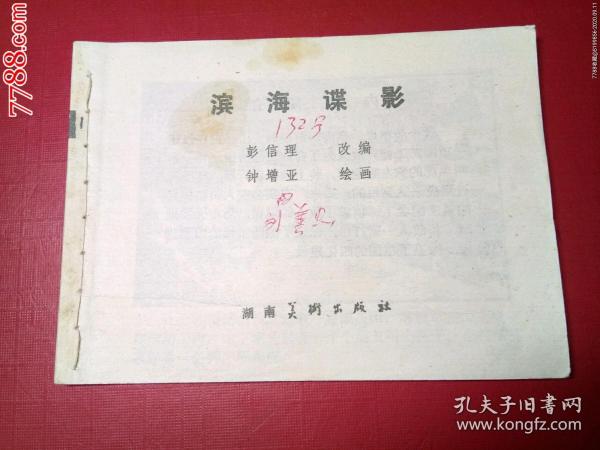 滨海谍影
132号
彭信理 改编
钟增亚 绘画
湖南美术出版社
7788.com
7788收藏@s199656·2020.09.11
孔夫子旧书网
www.kongfz.com